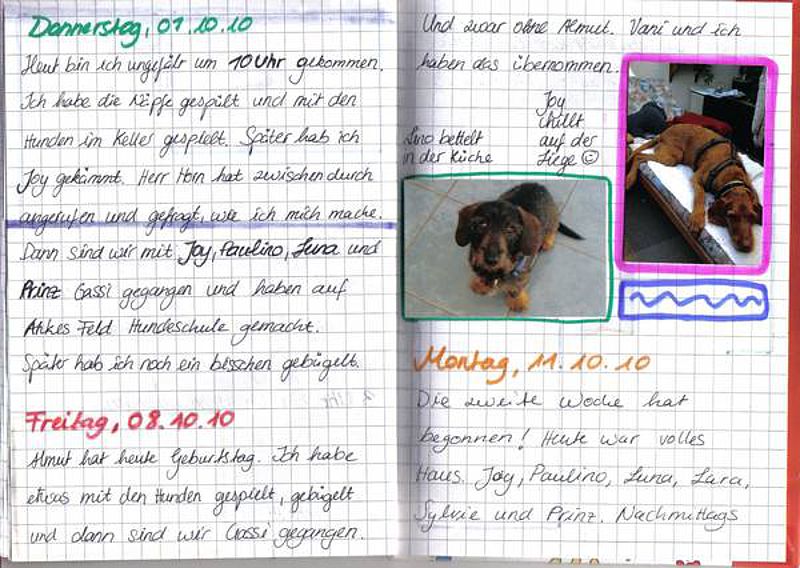 Donnerstag, 07.10.10
Heut bin ich ungefähr um 10 Uhr gekommen.
Ich habe die Näpfe gespült und mit den
Hunden im Keller gespielt. Später hab ich
Joy gekämmt. Herr Horn hat zwischendurch
angerufen und gefragt, wie ich mich mache.
Dann sind wir mit Joy, Paulino, Luna und
Prinz Gassi gegangen und haben auf
Ahkes Feld Hundeschule gemacht.
Später hab ich noch ein bisschen gebügelt.
Freitag, 08.10.10
Almut hat heute Geburtstag. Ich habe
etwas mit den Hunden gespielt, gebügelt
und dann sind wir Gassi gegangen.
Und zwar ohne Almut. Vani und ich
haben das übernommen.
Joy
chillt
auf der
Liege ☺
Lino bettelt
in der Küche
Montag, 11.10.10
Die zweite Woche hat
begonnen! Heute war volles
Haus. Joy, Paulino, Luna, Lara,
Sylvie und Prinz. Nachmittags